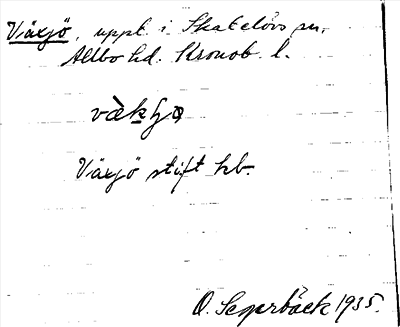 Växjö, uppt. i Skatelövs sn,
Allbo hd. Kronob. l.
Växjö stift hb.
O. Segerbäck 1935.